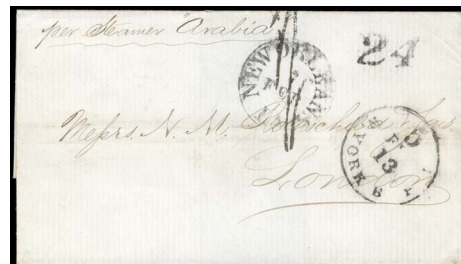 per Steamer Arabia
24
NEW ORLEANS
Messrs. N. M. Rothschild & Sons
London
YORK
13